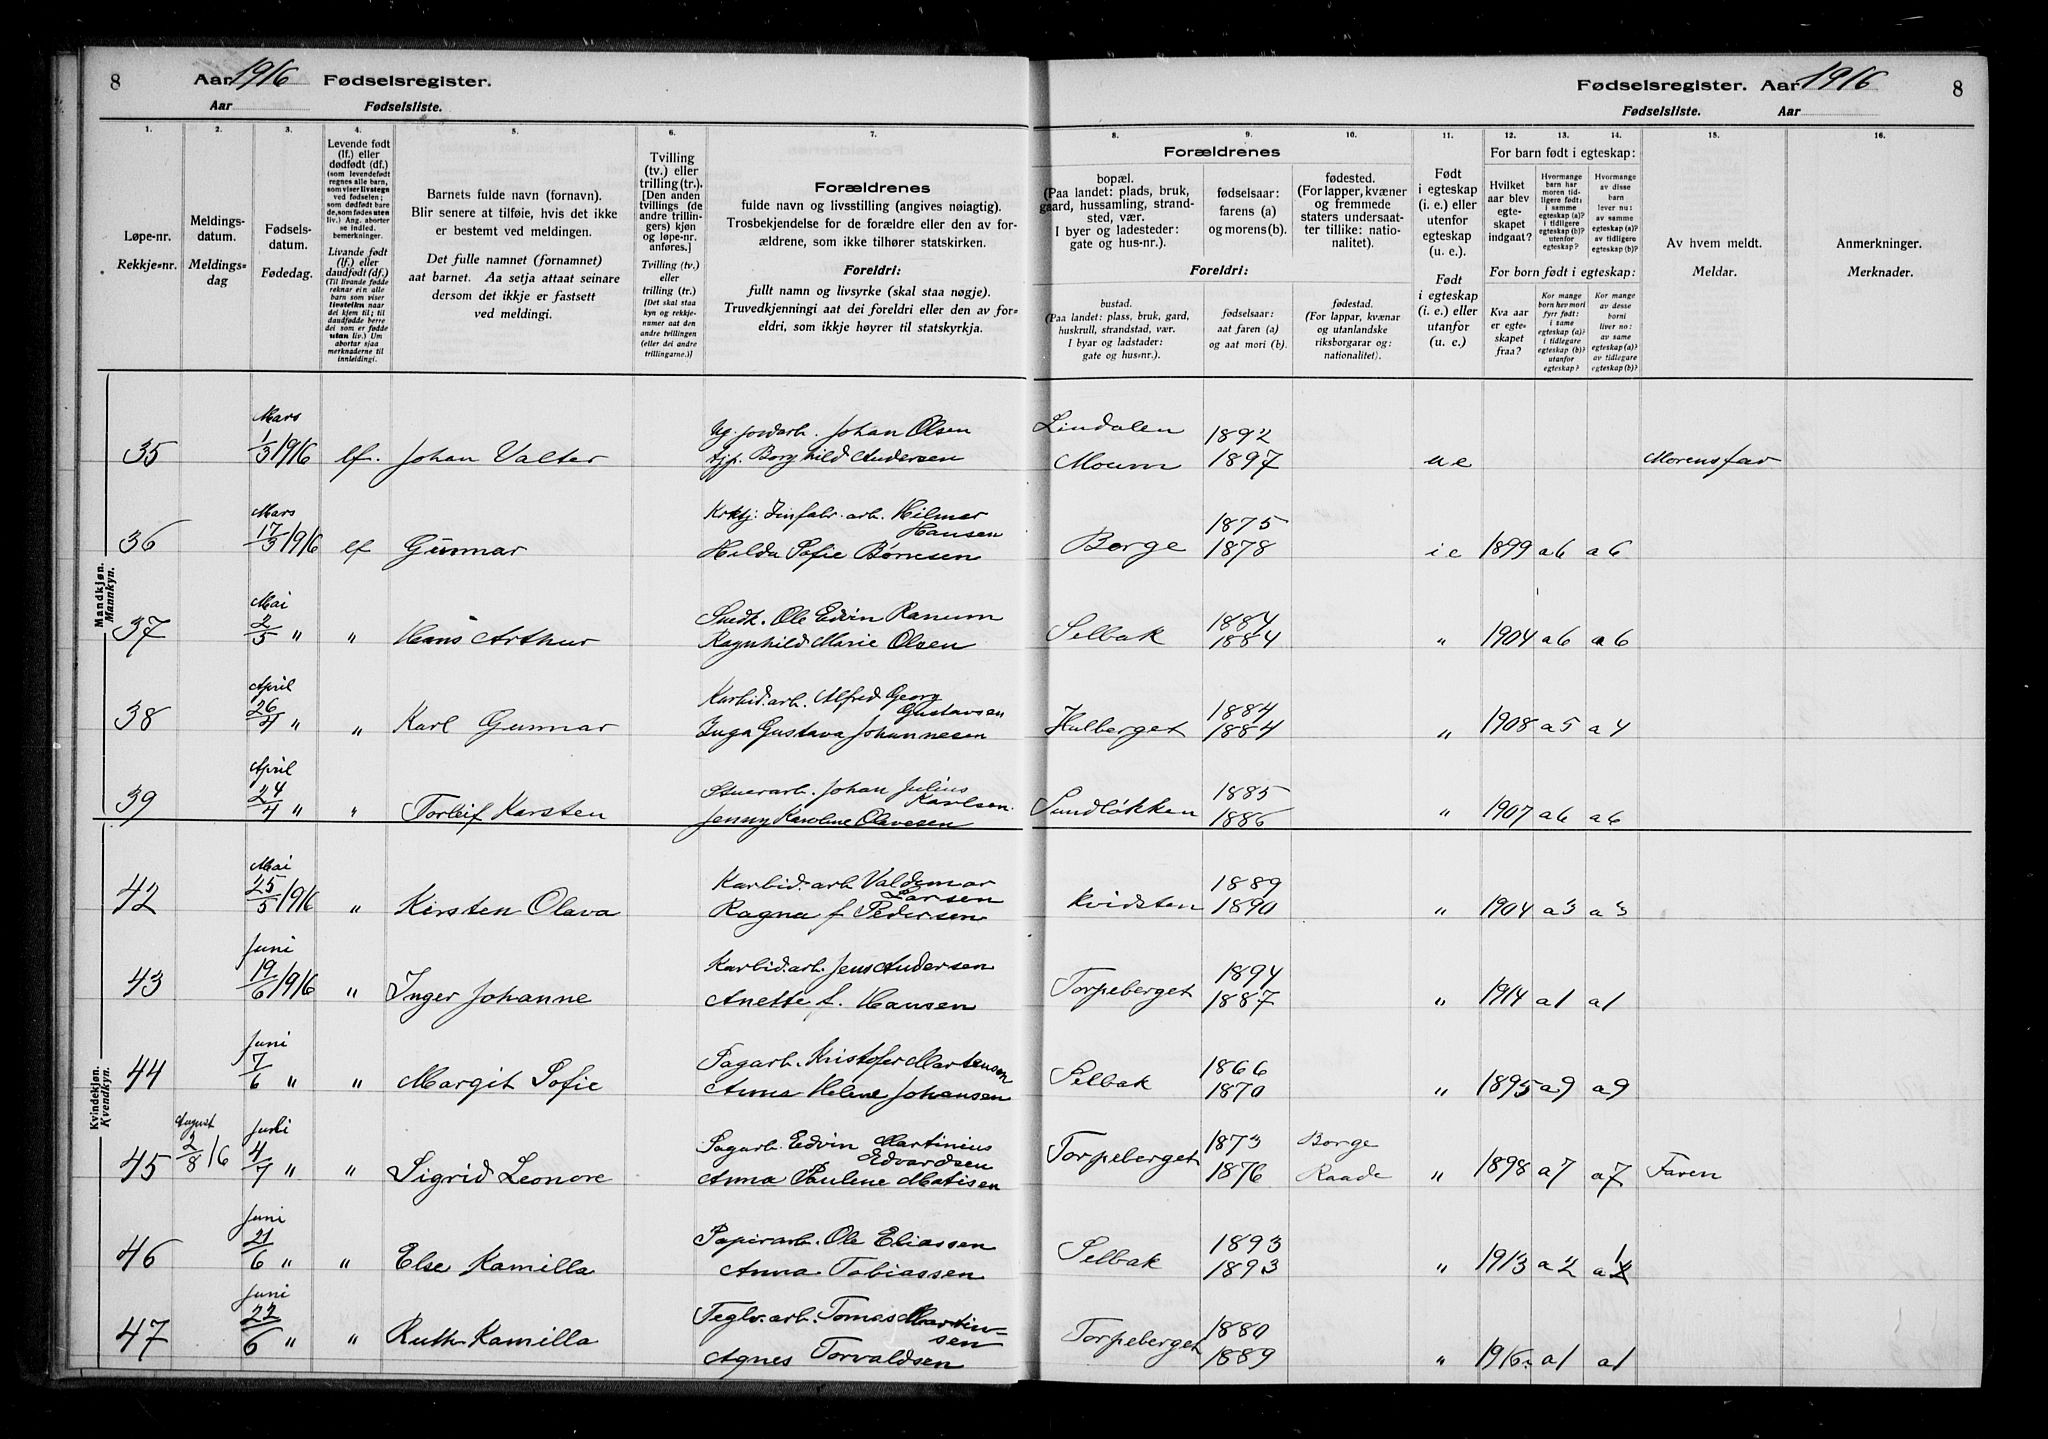 8 Aar 1916 Fødselsregister.
Aar Fødselsliste.
Fødselsregister. Aar 1916 8
Fødselsliste. Aar
1. 2. 3. 4. 5. 6. 7. 8. 9. 10. 11. 12. 13. 14. 15. 16.
Løpe-nr.
Rekkje-nr.
Meldings-
datum.
Meldings-
dag
Fødsels-
datum.
Fødedag.
Levende født
(lf.) eller
dødfødt (df.)
(som levendefødt
regnes alle barn,
som viser livstegn
ved fødselen;
som dødfødt bare
de, som fødes uten
liv.) Ang. aborter
se indled.
bemerkninger.
Livande født
(lf.) eller
daudfødt (df.)
(Til livande fødde
reknar ein alle
barn som viser
livsteikn naar
dei kjem til; til
daudfødde berre
dei som er fødde
utan liv.) Um
abortar sjaa
merknaderne til
innleidingi.
Barnets fulde navn (fornavn).
Blir senere at tilføie, hvis det ikke
er bestemt ved meldingen.
Det fulle namnet (fornamnet)
aat barnet. Aa setja attaat seinare
dersom det ikkje er fastsett
ved meldingi.
Tvilling
(tv.) eller
trilling (tr.).
[Den anden
tvillings (de
andre trillin-
gers) kjøn
og løpe-nr.
anføres.]
Tvilling (tv.)
eller
trilling (tr.)
[Det skal staa
kyn og rekkje-
numer aat den
andre tvillingen
(eller dei andre
trillingarne.)]
Forældrenes
fulde navn og livsstilling (angives nøiagtig).
Trosbekjendelse for de forældre eller den av for-
ældrene, som ikke tilhører statskirken.
Foreldri:
fullt namn og livsyrke (skal staa nøgje).
Truvedkjenningi aat dei foreldri eller den av for-
eldri, som ikkje høyrer til statskyrkja.
Forældrenes
bopæl.
(Paa landet: plads, bruk,
gaard, hussamling, strand-
sted, vær.
I byer og ladesteder:
gate og hus-nr.).
fødselsaar:
farens (a)
og morens (b).
fødested.
(For lapper, kvæner
og fremmede
staters undersaat-
ter tillike: natio-
nalitet).
Foreldri:
bustad.
(Paa landet: plass, bruk, gard,
huskrull, strandstad, vær.
I byar og ladstader:
gate og hus-nr.).
fødselsaar:
aat faren (a)
og aat mori (b).
fødestad.
(For lappar, kvænar
og utanlandske
riksborgarar og:
nationalitet).
Født
i egteskap
(i. e.) eller
utenfor
egteskap
(u. e.).
Født
i egteskap
(i. e.) eller
utanfor
(u. e.)
For barn født i egteskap:
Hvilket
aar blev
egte-
skapet
indgaat?
Hvormange
barn har
moren tid-
ligere født:
i samme
egteskap (a)?
i tidligere
egteskap (b)?
utenfor
egteskap?
Hvormange
av disse
barn
lever nu:
av samme
egteskap (a)?
av tidligere
egteskap (b)?
For born født i egteskap:
Kva aar
er egte-
skapet
fraa?
Kor mange
born hev mori
fyrr født:
i same
egteskap (a)?
i tidlegare
egteskap (b)?
utanfor
egteskap?
Kor mange
av desse
borni
liver no:
av same
egteskap (a)?
av tidlegare
egteskap (b)?
Av hvem meldt.
Meldar.
Anmerkninger.
Merknader.
Mandkjøn.
Mannkyn.
35 Mars 1/3 1916 lf. Johan Valter Ug. jordarb. Johan Olsen
tjp. Borghild Andersen Lindalen Moum 1892 1897 u e Morens far
36 Mars 17/3 1916 lf Gunnar Hilmer Hansen
Hilda Sofie Børresen Borge 1875 1878 i e 1899 a6 a6
37 Mai 2/5 " " Hans Arthur Snedk. Ole Edvin Ranum
Ragnhild Marie Olsen Selbak 1884 1884 " 1904 a6 a6
38 April 26/4 " " Karl Gunnar Karbid.arb. Alfred Georg Gustavsen
Inga Gustava Johannesen Hulberget 1884 1884 " 1908 a5 a4
39 April 24/4 " " Torleif Karsten Stuerarb. Johan Julius Karlsen.
Jenny Karoline Olavesen Sundløkken 1885 1886 " 1907 a6 a6
Kvindekjøn.
Kvendkyn.
42 Mai 25/5 1916 " Kirsten Olava Karbid.arb Valdemar Larsen
Ragna f Pedersen Kvidsten 1889 1890 " 1904 a3 a3
43 Juni 19/6 1916 " Inger Johanne Karbid.arb. Jens Andersen
Anette f. Hansen Torpeberget 1894 1887 " 1914 a1 a1
44 Juni 7/6 " " Margit Sofie Sagarb. Kristofer Martensen
Anna Helene Johansen Selbak 1866 1870 " 1895 a9 a9
45 August 2/8 16 Juli 4/7 " " Sigrid Leonore Sagarb. Edvin Martinius Edvardsen
Anna Pauline Matisen Torpeberget 1873 1876 Borge Raade " 1898 a7 a7 Faren
46 Juni 21/6 " " Else Kamilla Papirarb. Ole Eliassen
Anna Tobiassen Selbak 1893 1893 " 1913 a2 a1
47 Juni 22/6 " " Ruth Kamilla Teglv.arb. Tomas Martinsen
Agnes Torvaldsen Torpeberget 1880 1889 " 1916. a1 a1